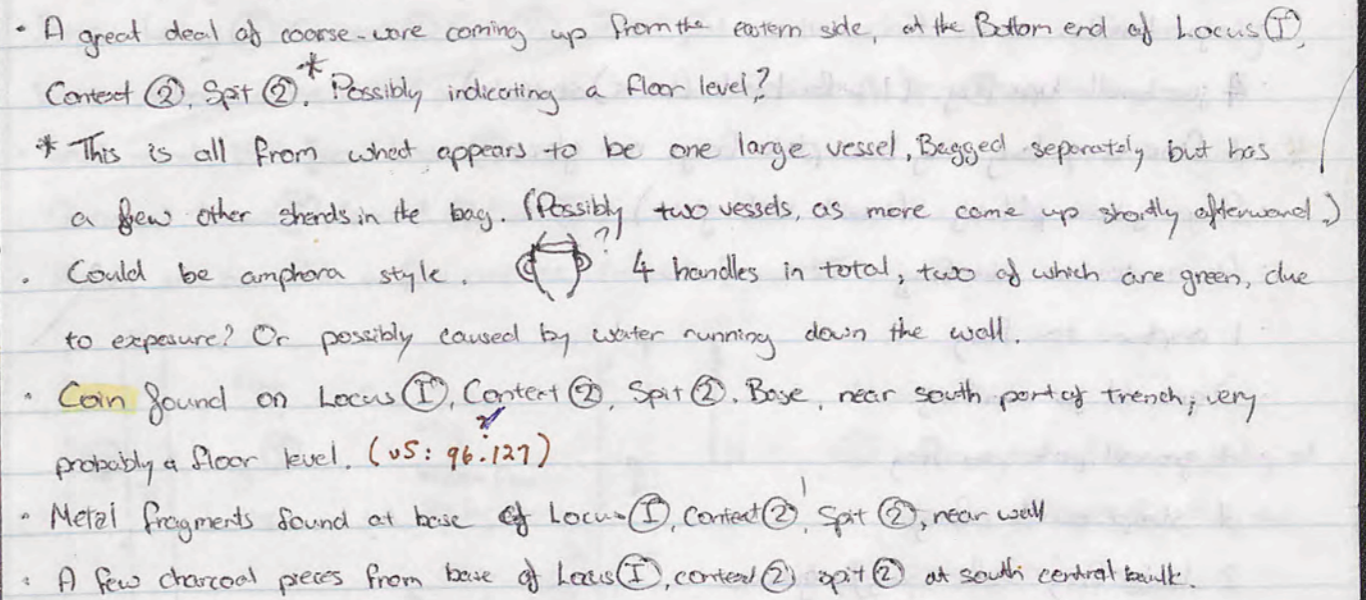 • A great deal of coarse-ware coming up from the eastern side, at the Bottom end of Locus Ⓘ,
Context ②, Spit ②.* Possibly indicating a floor level?
* This is all from what appears to be one large vessel, Bagged separately but has
a few other sherds in the bag. (Possibly two vessels, as more came up shortly afterward.)
• Could be amphora style. ? 4 handles in total, two of which are green, due
to exposure? Or possibly caused by water running down the wall.
• Coin found on Locus Ⓘ, Context ②, Spit ②. Base, near south part of trench; very
probably a floor level. (vS: 96.127)
• Metal fragments found at base of Locus Ⓘ, Context ②, Spit ②, near wall
• A few charcoal pieces from base of Locus Ⓘ, context ② spit ② at south central baulk.